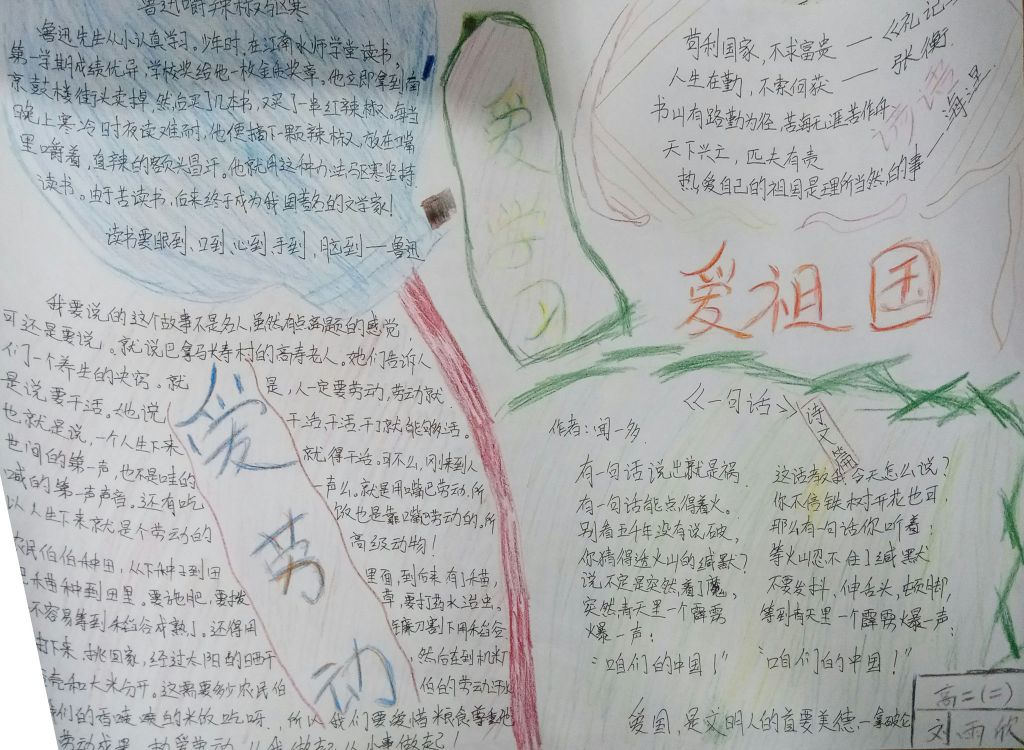 鲁迅嚼辣椒驱寒
鲁迅先生从小认真学习。少年时,在江南水师学堂读书,
第一学期成绩优异,学校奖给他一枚金质奖章。他立即拿到南
京鼓楼街头卖掉,然后买了几本书,又买了一串红辣椒。每当
晚上寒冷时夜读难耐,他便摘下一颗辣椒,放在嘴
里嚼着,直辣的额头冒汗。他就用这种办法驱寒坚持
读书。由于苦读书,后来终于成为我国著名的文学家!
读书要眼到、口到、心到、手到、脑到——鲁迅
爱学习
苟利国家,不求富贵——《礼记》
人生在勤,不索何获——张衡
书山有路勤为径,苦海无涯苦作舟
天下兴亡,匹夫有责
热爱自己的祖国是理所当然的事——海涅
爱祖国
我要说的这个故事不是名人,虽然有点离题的感觉,
可还是要说。就说巴拿马长寿村的高寿老人。她们告诉人
们一个养生的诀窍。就是,人一定要劳动,劳动就
是说要干活。他说干活,干活,干了就能够活。
也就是说,一个人生下来就得干活。可不么,刚来到人
世间的第一声,也不是哇的一声么。就是用嘴巴劳动,所
喊的第一声声音。还有吃饮也是靠嘴巴劳动的。所
以人生下来就是个劳动的高级动物!
农民伯伯种田,从下种子到田里面,到后来有了禾苗,
禾苗种到田里。要施肥,要拨草,要打药水治虫。
不容易等到稻谷成熟了。还得用镰刀割下用稻谷
下来,挑回家,经过太阳的晒干,然后在到机米厂
壳和大米分开。这需要多少农民伯伯的劳动汗水
们的香喷喷的米饭吃呀。所以我们要爱惜粮食尊重他
劳动成果,热爱劳动,从我做起,从小事做起!
爱劳动
《一句话》
诗文篇
作者:闻一多
有一句话说出就是祸,
有一句话能点得着火。
别看五千年没有说破,
你猜得透火山的缄默?
说不定是突然着了魔,
突然青天里一个霹雳
爆一声:
“咱们的中国!”
这话教我今天怎么说?
你不信铁树开花也可,
那么有一句话你听着:
等火山忍不住了缄默
不要发抖,伸舌头,顿脚,
等到青天里一个霹雳爆一声:
“咱们的中国!”
爱国,是文明人的首要美德—拿破仑
高二(二)
刘雨欣